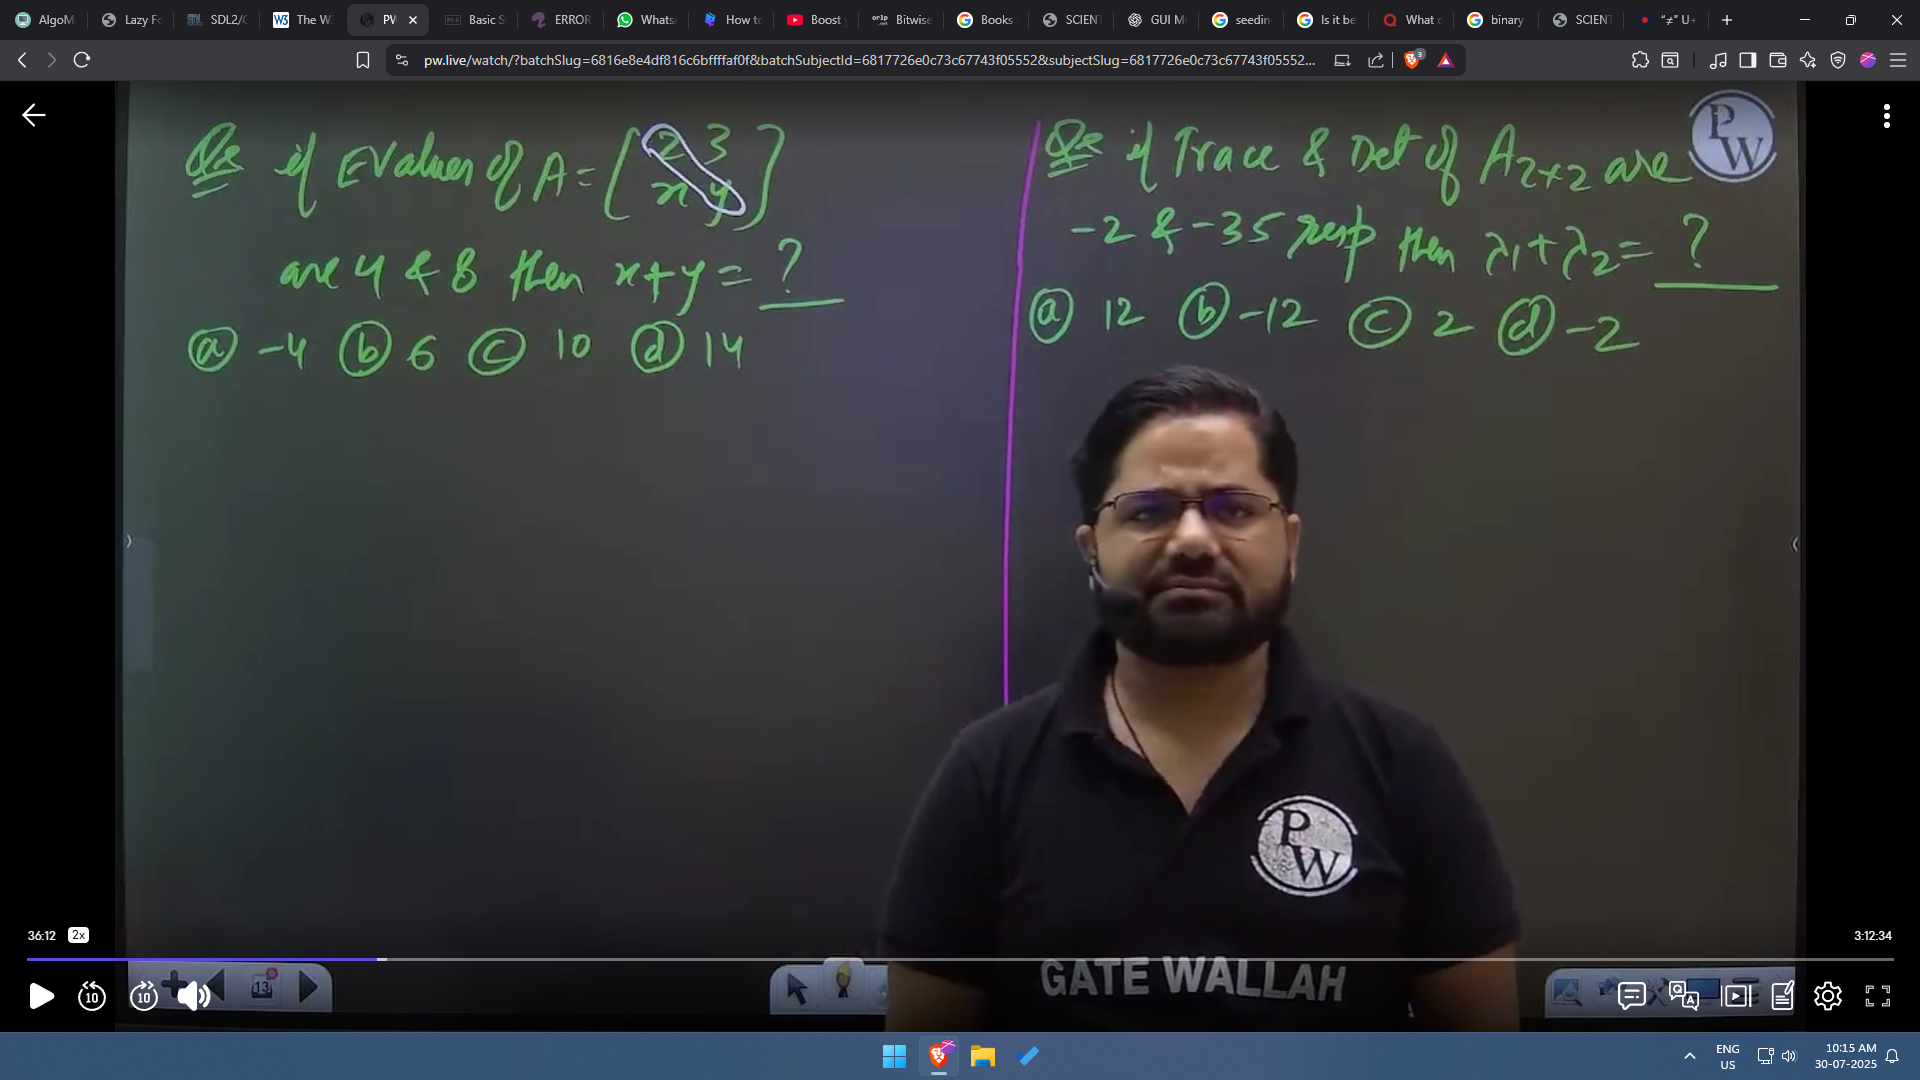 AlgoM
Lazy Fo
SDL2/
The W
PW
Basic S
ERROR
WhatsA
How to
Boost
Bitwise
Books
SCIENT
GUI M
seedin
Is it be
What
binary
SCIENT
"≠" U+
pw.live/watch/?batchSlug=6816e8e4df816c6bffffaf0f&batchSubjectId=6817726e0c73c67743f05552&subjectSlug=6817726e0c73c67743f05552...
Qs if EValues of A = [2 3
x y]
are 4 & 8 then x+y = ?
(a) -4 (b) 6 (c) 10 (d) 14
Qs if Trace & Det of A2×2 are
-2 & -35 resp then λ1+λ2 = ?
(a) 12 (b) -12 (c) 2 (d) -2
PW
PW
GATE WALLAH
36:12 2x
3:12:34
10
10
13
ENG
US
10:15 AM
30-07-2025